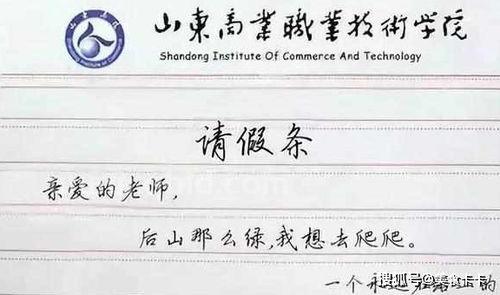 山東商業職業技術学院
Shandong Institute Of Commerce And Technology
请假条
亲爱的老师，
后山那么绿，我想去爬爬。
一个永远在路上的